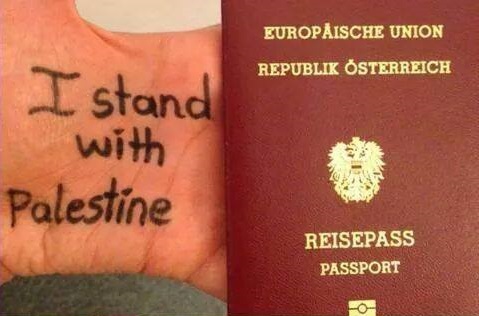 I stand
with
Palestine
EUROPÄISCHE UNION
REPUBLIK ÖSTERREICH
REISEPASS
PASSPORT